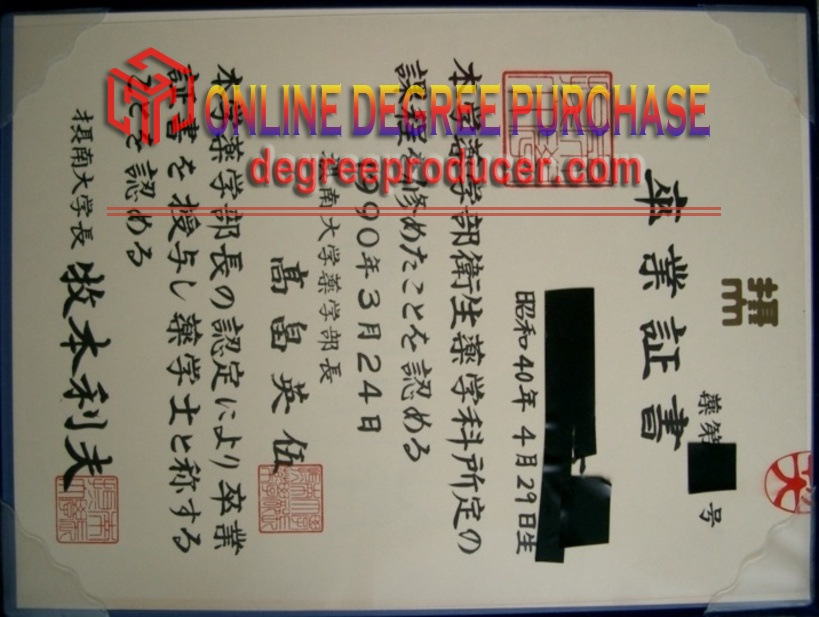 ONLINE DEGREE PURCHASE
degreeproducer.com
摂南
大
薬第 号
卒業証書
昭和40年4月29日生
本学薬学部衛生薬学科所定の
課程を修めたことを認める
1990年3月24日
摂南大学薬学部長
高畠英伍
本学薬学部長の認定により卒業
証書を授与し薬学士と称する
ことを認める
摂南大学長 牧本利夫